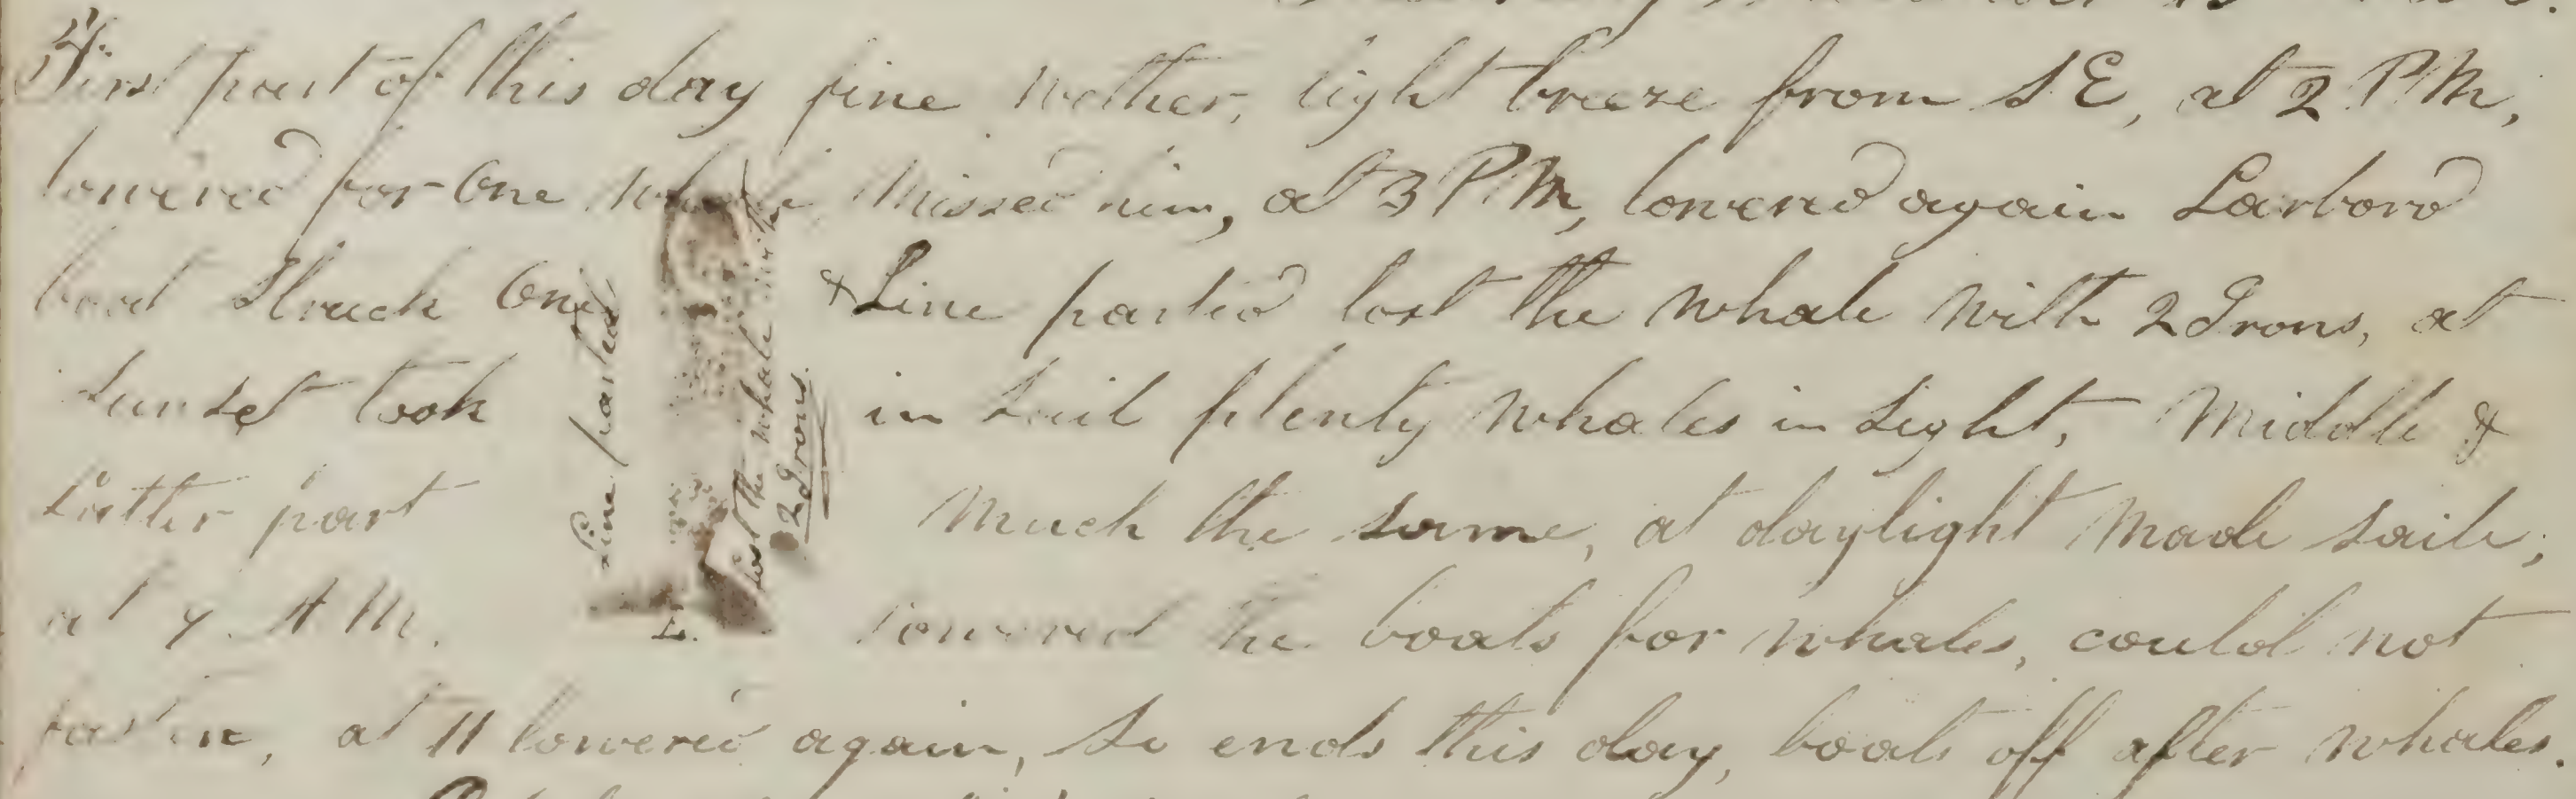 First part of this day fine wether, light breeze from S E, at 2 P M,
lowered for one whale missed him, at 3 P M, lowered again Larbord
boat Struck One & Line parted lost the whale with 2 Irons, at
Sunset took in sail plenty whales in sight, Middle &
Latter part Much the same, at daylight made saile,
at 7 A M. lowered the boats for whales, could not
fasten, at 11 lowered again, So ends this day, boats off after whales.
Line parted
Lost the whale with
2 Irons.
L.